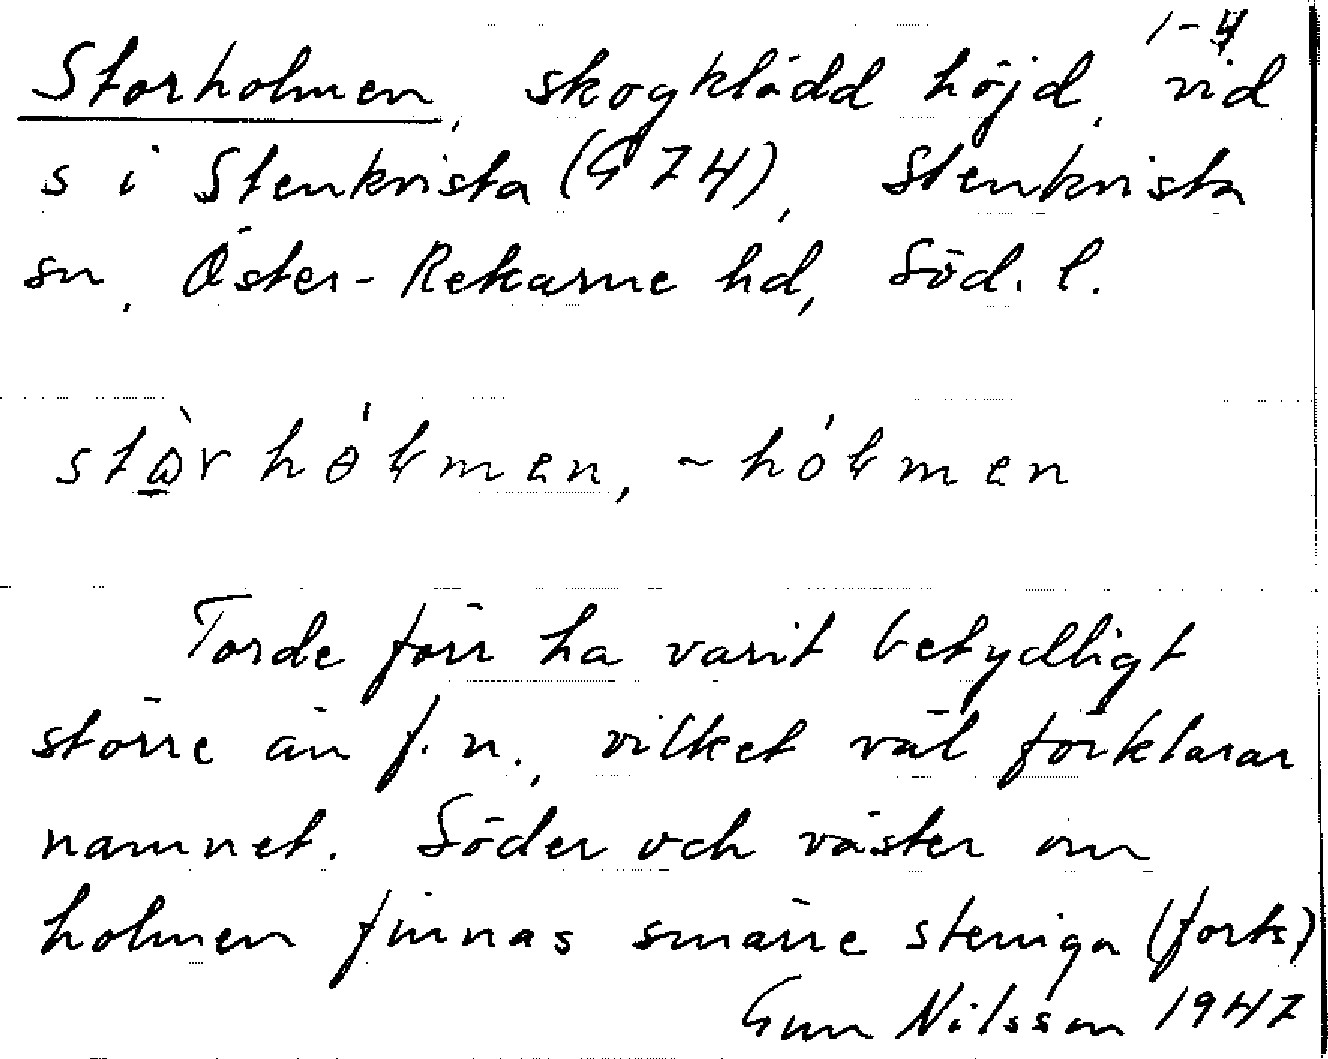 1-4
Storholmen, skogklädd höjd, vid
s i Stenkvista (G 74), Stenkvista
sn, Öster-Rekarne hd, Söd. l.
Torde förr ha varit betydligt
större än f. n., vilket väl förklarar
namnet. Söder och väster om
holmen finnas smärre steniga (forts)
Gun Nilsson 1947